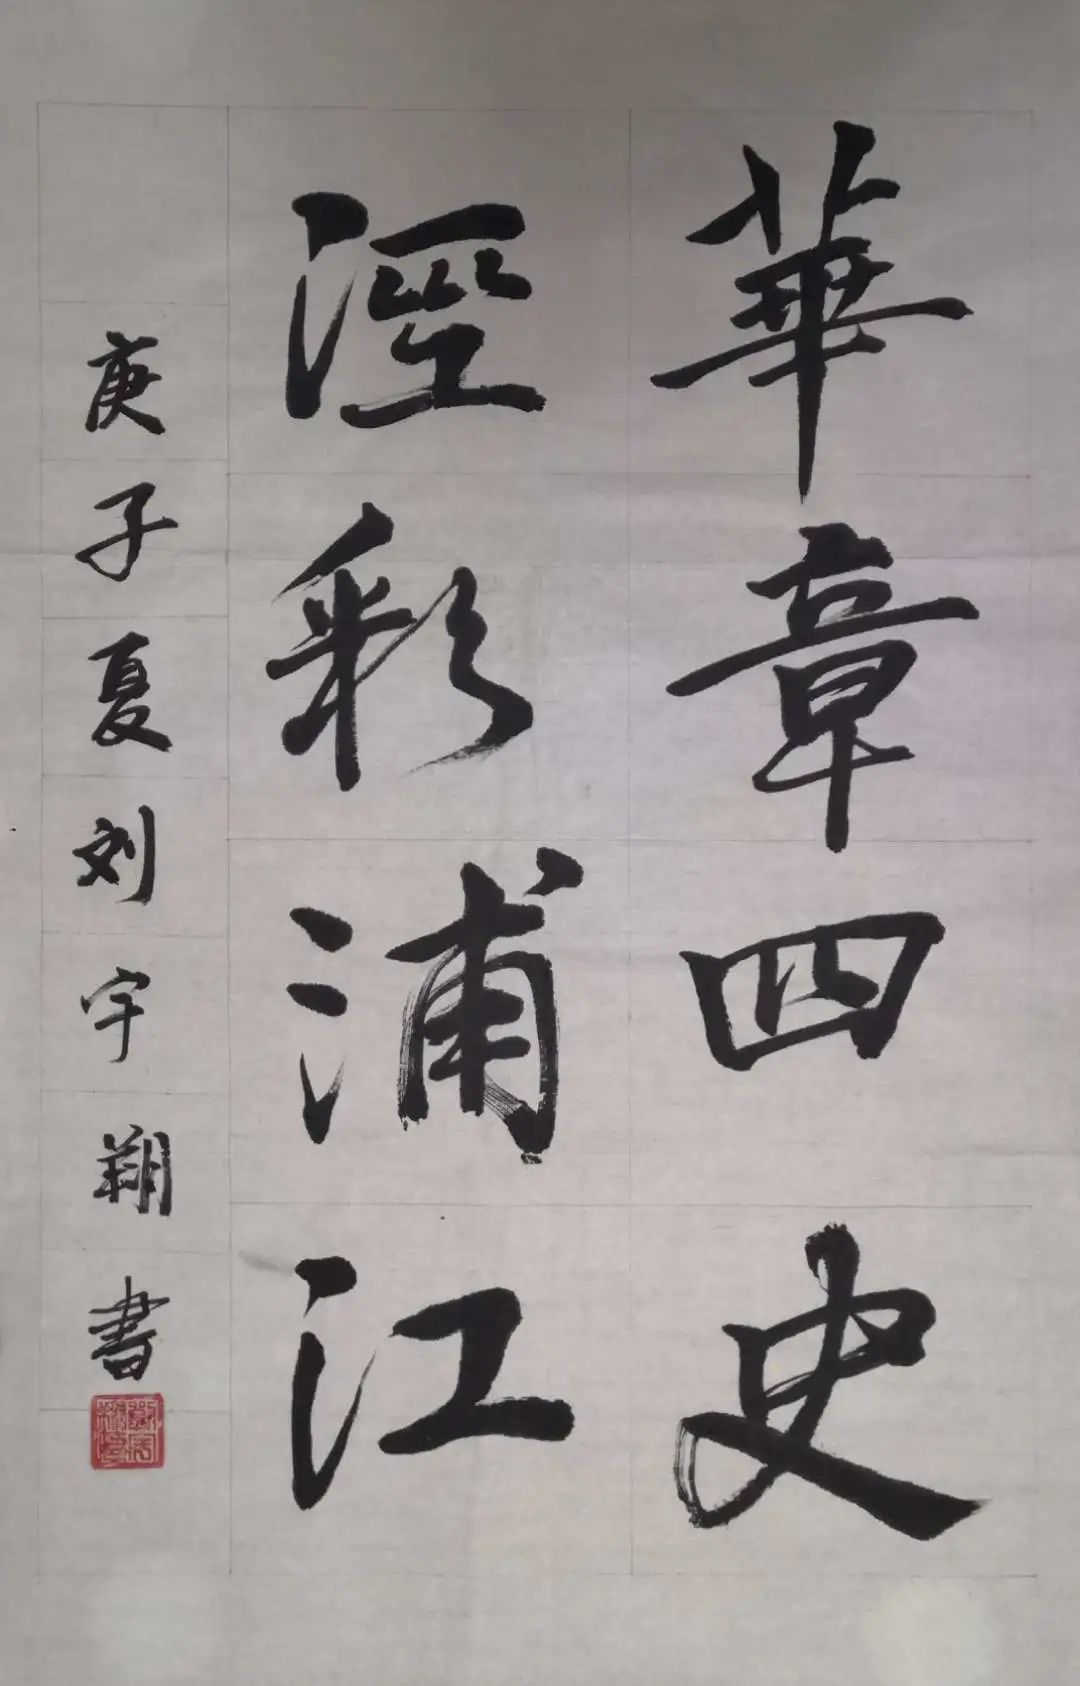 華章四史
涇彩浦江
庚子夏刘宇翔書